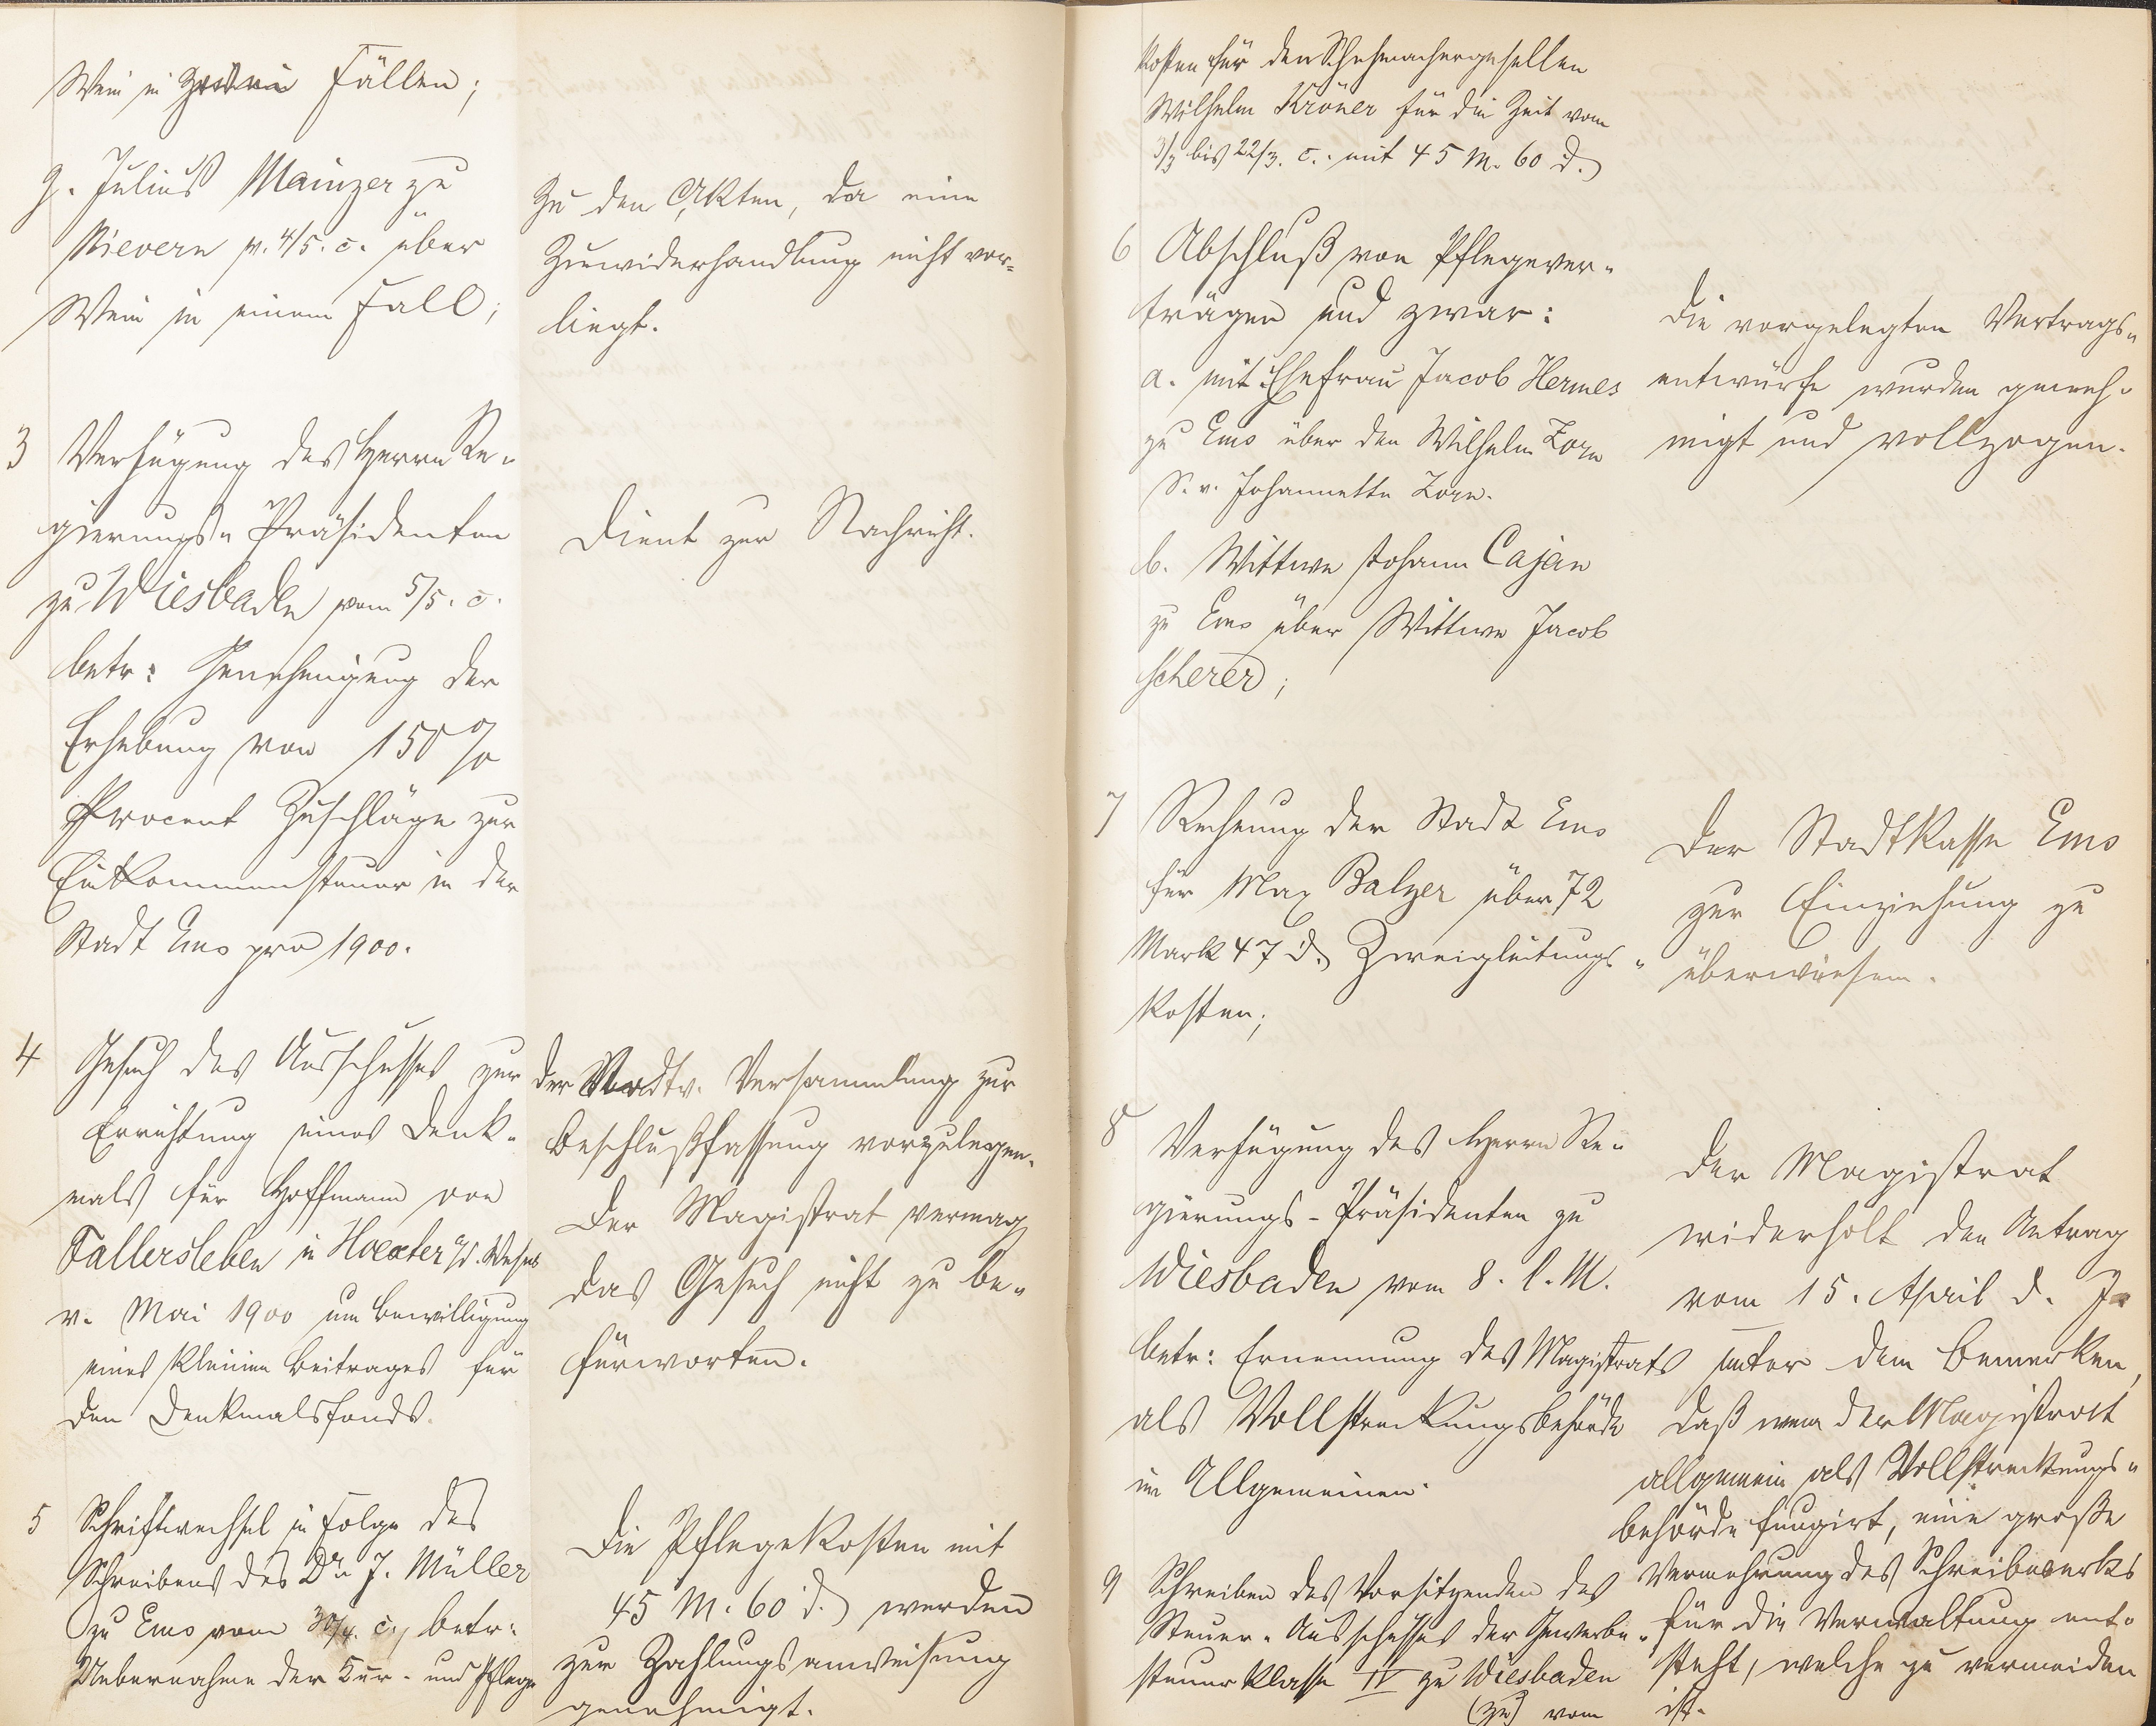 Wein in Fällen;
g. Julius Mainzer zu
Nievern v. 4/5. c. über
Wein in einem Fall;
Zu den Akten, da eine
Zuwiderhandlung nicht vor-
liegt.
3 Verfügung des Herrn Re-
gierungs-Präsidenten
zu Wiesbaden vom 5/5. c.
betr: Genehmigung der
Erhebung von 150 %
Procent Zuschläge zur
Einkommensteuer in der
Stadt Ems pro 1900.
Dient zur Nachricht.
4 Gesuch des Ausschusses zur
Errichtung eines Denk-
mals für Hoffmann von
Fallersleben in Hoexter a/d. Weser
v. Mai 1900 um Bewilligung
eines kleinen Beitrages für
den Denkmalsfonds.
der Stadtv. Versammlung zur
Beschlußfassung vorzulegen.
Der Magistrat vermag
das Gesuch nicht zu be-
fürworten.
5 Schriftwechsel in Folge des
Schreibens des Dr. J. Müller
zu Ems vom 30/4. c., betr:
Uebernahme der Kur- und Pflege
Die Pflegekosten mit
45 M. 60 d. werden
zur Zahlungsanweisung
genehmigt.
kosten für den Schuhmachergesellen
Wilhelm Kröner für die Zeit vom
3/3 bis 22/3. c. mit 45 M. 60 d.
6 Abschluß von Pflegever-
trägen und zwar:
a. mit Ehefrau Jacob Hermes
zu Ems über den Wilhelm Zorn
S. v. Johannette Zorn.
b. Wittwe Johann Cajan
zu Ems über Wittwe Jacob
Scherer;
Die vorgelegten Vertrags-
entwürfe wurden geneh-
migt und vollzogen.
7 Rechnung der Stadt Ems
für Max Balzer über 72
Mark 47 d. Zweigleitungs-
kosten;
Der Stadtkasse Ems
zur Einziehung zu
überweisen.
8 Verfügung des Herrn Re-
gierungs-Präsidenten zu
Wiesbaden vom 8. l. M.
betr: Ernennung des Magistrats
als Vollstreckungsbehörde
im Allgemeinen.
Der Magistrat
widerholt den Antrag
vom 15. April d. J.
unter dem Bemerken,
daß wenn der Magistrat
allgemein als Vollstreckungs-
behörde fungirt, eine große
Vermehrung des Schreibwerks
für die Verwaltung ent-
steht, welche zu vermeiden
ist.
9 Schreiben des Vorsitzenden des
Steuer-Ausschusses der Gewerbe-
steuerklasse IV zu Wiesbaden
(zu) vom